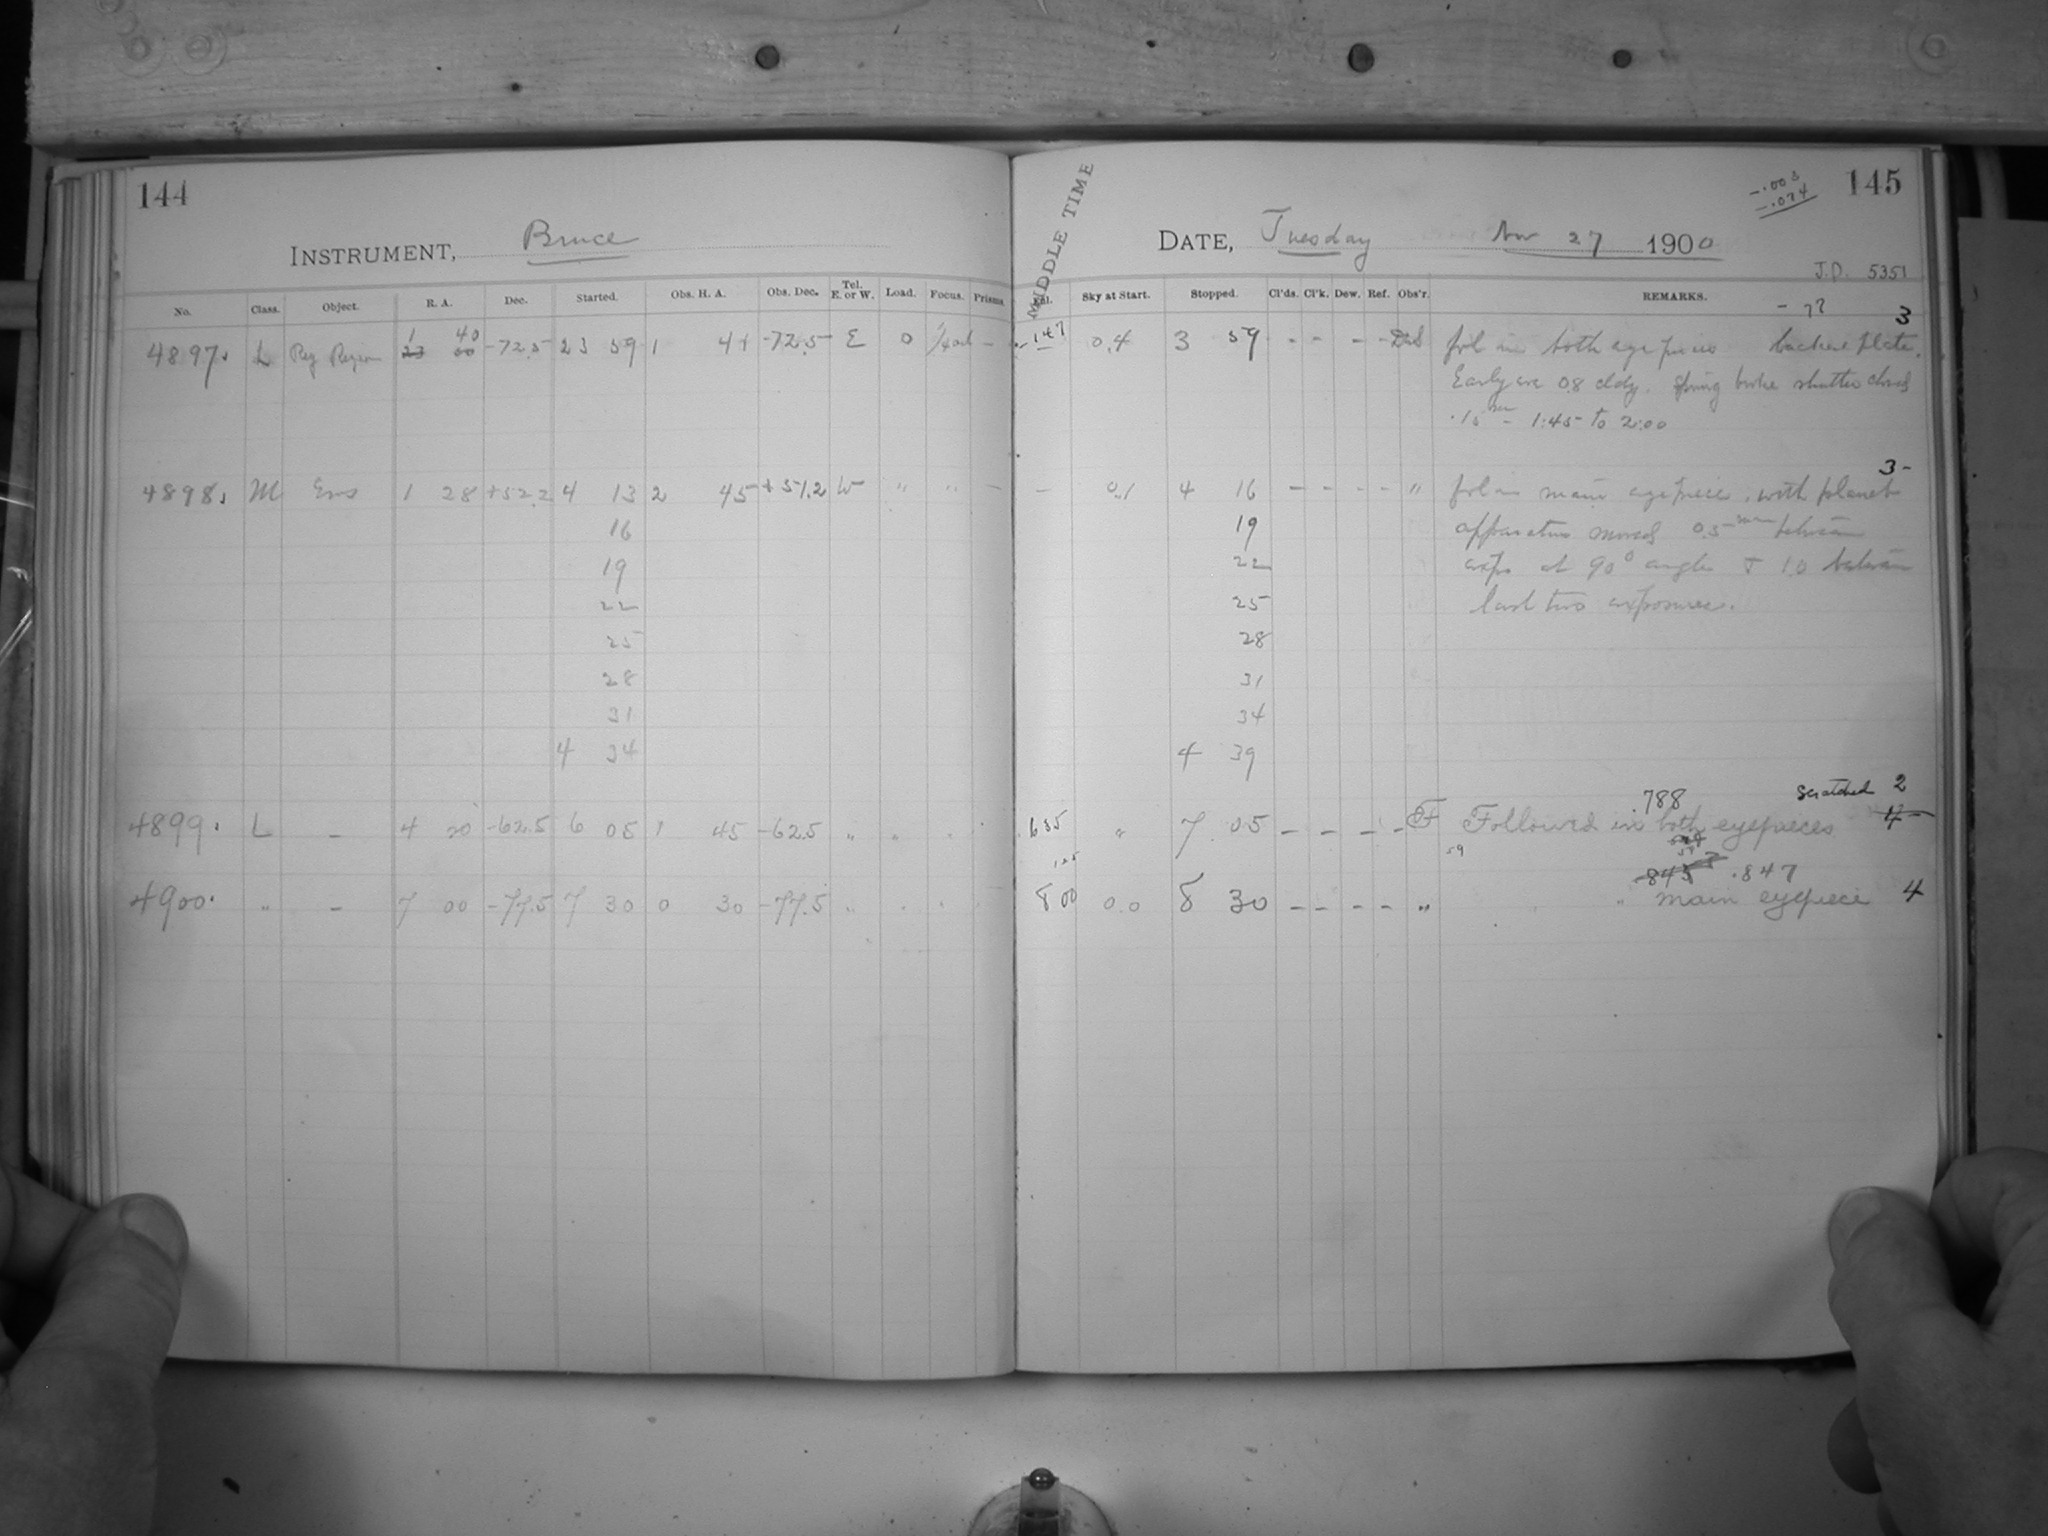 144
INSTRUMENT, Bruce
No. Class. Object. R. A. Dec. Started. Obs. H. A. Obs. Dec. Tel. E. or W. Load. Focus. Prisms.
1 40
4897. L Reg Region 23 00 -72.5 23 59 1 44 -72.5 E 0 -
4898. M Eros 1 28 +52.2 4 13 2 45 +51.2 W " " -
16
19
22
25
28
31
4 34
4899. L - 4 20 -62.5 6 05 1 45 -62.5 " " " "
4900. " - 7 00 -77.5 7 30 0 30 -77.5 " " " "
MIDDLE TIME
-.003
-.074
145
DATE, Tuesday Nov 27 1900
J.D. 5351
Sky at Start. Stopped. Cl'ds. Cl'k. Dew. Ref. Obs'r. REMARKS.
- 77 3
.147 0.4 3 59 - - - - fol in both eye pieces backed plate.
Early ave 0.8 cldy. Spring broke shutter closed
.15 m - 1:45 to 2:00
3-
- 0.1 4 16 - - - - " fol in main eye piece. with planet
19 apparatus moved 0.5 mm between
22 exps at 90° angle & 1.0 between
25 last two exposures.
28
31
34
4 39
.788 scratched 2
635 " 7 05 - - - - F Followed in both eyepieces 4
59
125 845 .847
8 00 0.0 8 30 - - - - " " " main eyepiece 4